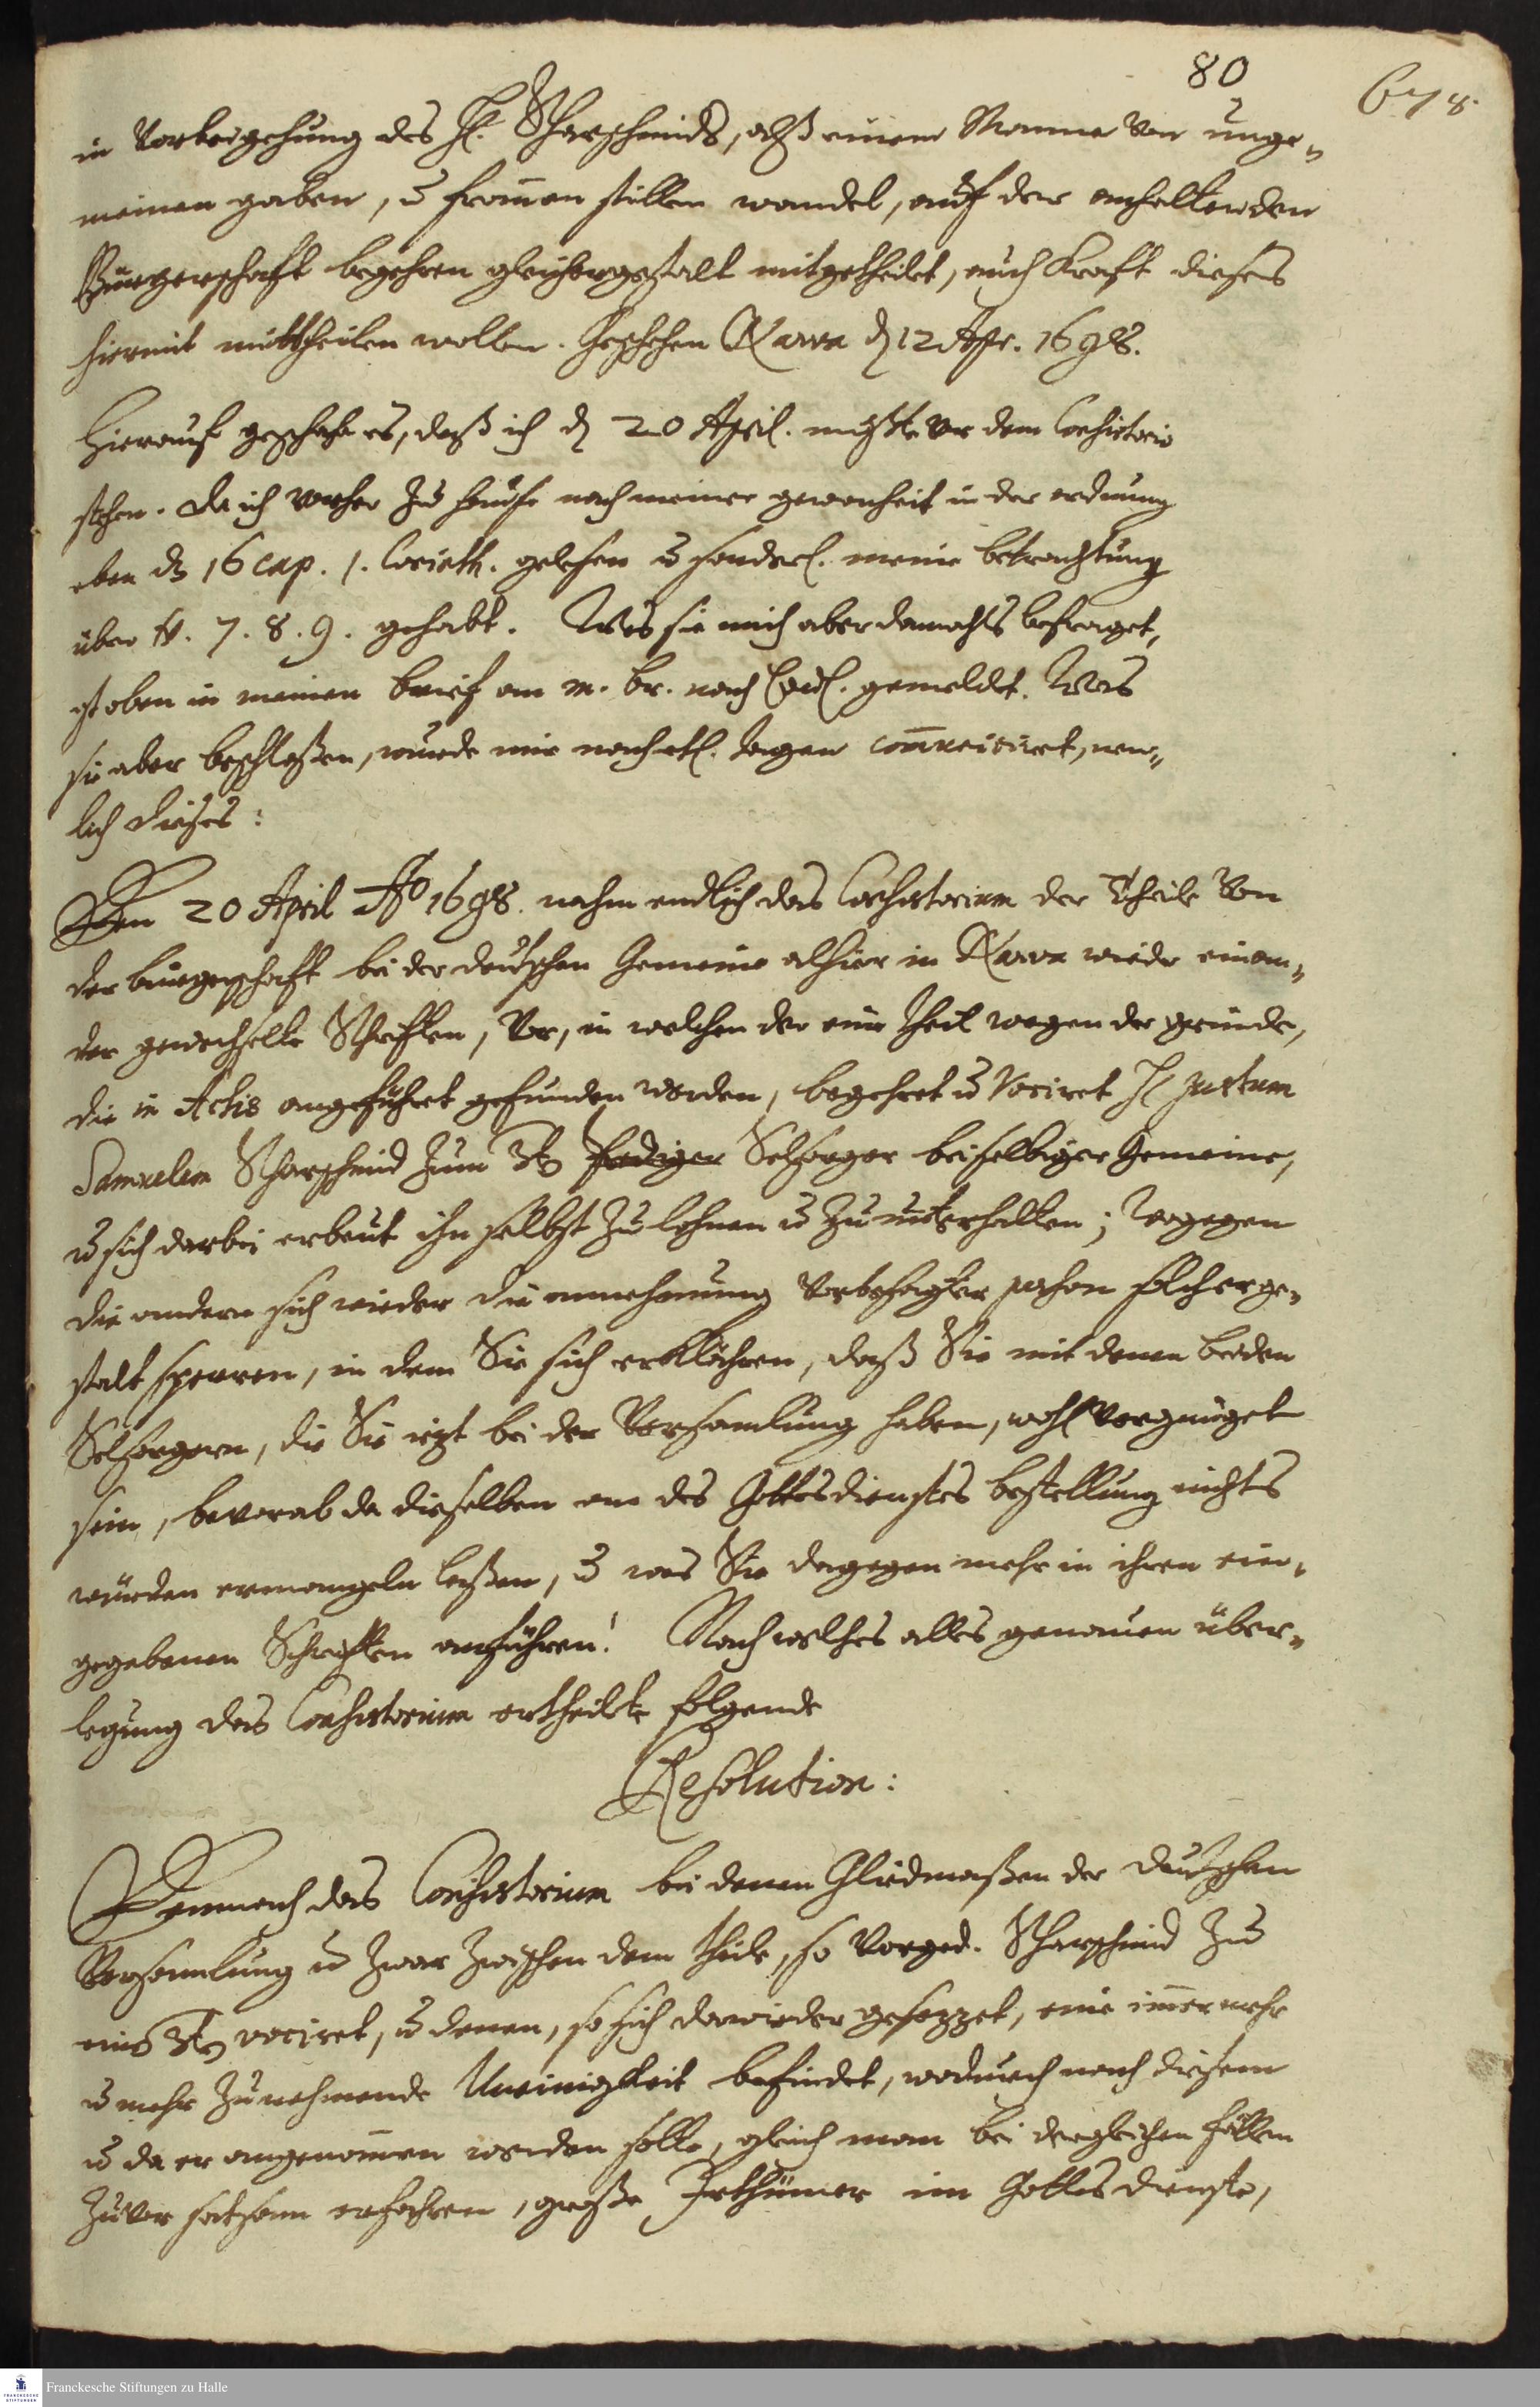 80
678.
in Vorbeigehung des H. Scharschmids, alß einem Manne von unge„
meinen gaben, u. from̄en stillen wandel, auf der anhaltenden
Bürgerschafft begehren gleichergestalt mitgetheilet, auch Krafft dieses
hiermit mittheilen wollen. Geschehen Narva d. 12 Apr. 1698.
Hierauf geschahe es, daß ich d. 20 April. muste vor dem Consistorio
stehen. da ich vorher zu hause nach meiner gewonheit in der ordnung
eben dz 16 cap. 1. Corinth. gelesen u. sonderl. meine betrachtung
über V. 7. 8. 9. gehabt. Was sie mich aber damahls befraget,
ist oben in meinen brief an m. br. nach gemeldet. Was
sie aber beschloßen, wurde mir nach etl. tagen com̄uniciret, nem„
lich dieses:
Den 20 April Ao 1698. nahm endlich das Consistorium der Theile von
der bürgerschafft bei der deutschen Gemeine alhier in Narva wieder einan„
der gewechselte Schrifften, vor, in welchen der eine theil wegen der gründe,
die in Actis angeführet gefunden werden, begehret u. vociret H. Justum
Samuelem Scharschmid zum 3ten Prediger Selsorger bei selbiger Gemeine,
u. sich darbei erbeut ihn selbst zu lohnen u. zu unterhalten; Wogegen
die andern sich wieder die annehmung vorbesagter person solcherge„
stalt sperren, in dem Sie sich erklähren, daß Sie mit denen beiden
Selsorgern, die Sie izt bei der Versamlung haben, wohl vergnüget
sein, bevorab da dieselben an des Gottesdienstes bestellung nichts
würden ermangeln laßen, u. was Sie dagegen mehr in ihren ein„
gegebenen Schrifften anführen! Nach welches alles genauen über„
legung das Consistorium ertheilete folgende
Resolution:
Demnach das Consistorium bei denen Gliedmaßen der deutschen
Versamlung u. zwar zwischen dem theile, so Vorged. Scharschmid zu
eins 3ten vociret, u. denen, so sich dawieder gesezzet, eine im̄er mehr
u. mehr zunehmende Uneinigkeit befindet, wodurch nach diesem
u. da er angenom̄en werden solte, gleich man bei dergleichen fällen
zuvor satsam erfahren, große Irthümer im Gottesdienste,
Franckesche Stiftungen zu Halle